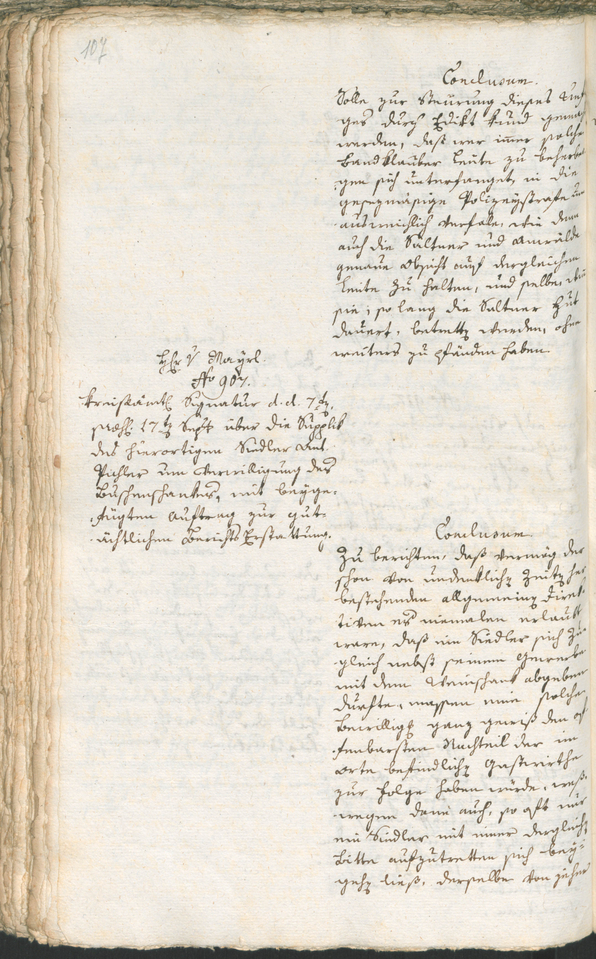 107
Conclusum.
Solle zur Steurung dieses
ges durch Edikt kund gemac
werden, daß wer immer solche
Landklauber Leute zu beherber
gen sich unterfanget, in die
gesezmäsige Polizeystrafe un
ausweichlich verfalle, wie dann
auch die Saltner und Anwälde
genaue Obsicht auf dergleichen
Leute zu halten, und selbe, wenn
sie, so lang die Saltner Hut
dauert, betretten werden, ohne
weiters zu pfänden haben.
Hr. v Mayrl
No 907.
Kreisämtl Signatur d. d. 7
præs. 17 Sept über die Supplik
des hierortigen Siedler Ant.
Pichler um Verwilligung des
Buschenschankes, mit beyge-
fügten Auftrag zur gut-
ächtlichen Berichts Erstattung.
Conclusum
Zu berichten, daß vermög der
schon von undenklich Zeiten her
bestehenden allgemeinen Direk
tiven es niemalen erlaubt
ware, daß ein Siedler sich zu-
gleich nebst seinem Gewerbe
mit dem Weinschank abgeben
durfte, massen eine solche
Bewilligg ganz gewiß den of
fenbarsten Nachteil der im
Orte befindlich Gastwirthe
zur Folge haben würde, weß-
wegen dann auch, so oft nur
ein Siedler mit einer dergleich
Bitte aufzutretten sich bey-
gehen ließ, derselbe von jeher